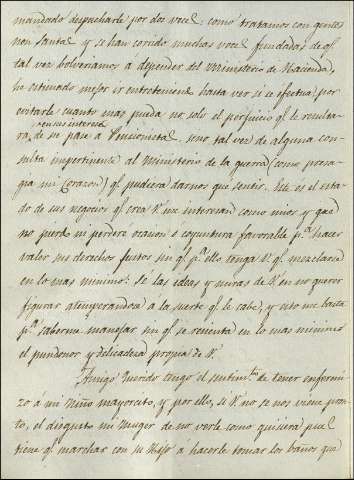 mandado despacharle por dos veces: como tratamos con gentes
non santas y se han corrido muchas voces fundadas de qᵉ
tal vez bolveriamos a depender del Ministerio de Hacienda,
he estimado mejor ir entreteniendo hasta ver si se efectua, por
evitarle cuanto mas pueda no solo el perjuicio qᵉ le resulta-
ra, a sus intereses de su pase a Pensionista, sino tal vez de alguna con-
sulta impertinente al Ministerio de la guerra (como presa-
gia mi corazon) qᵉ pudiera darnos que sentir. Este es el esta-
do de sus negocios qᵉ crea V. me interesan como mios y qᵉ
no pierdo ni perderé ocasion ó coyuntura favorable pᵃ hacer
valer sus derechos justos sin qᵉ pʳ ello tenga V. qᵉ mezclarse
en lo mas minimo: Sé las ideas y miras de V. en no querer
figurar atemperandose a la suerte qᵉ le cabe, y esto me basta
pᵃ saberme manejar sin qᵉ se resienta en lo mas minimo
el pundonor y delicadeza propia de V.
Amigo Querido tengo el sentimᵗᵒ de tener enfermi-
zo á mi Niño mayorcito, y por ello, si V. no se nos viene pron-
to, el disgusto mi Muger de no verle como quisiera pues
tiene qᵉ marchar con su Hijo á hacerle tomar los baños que